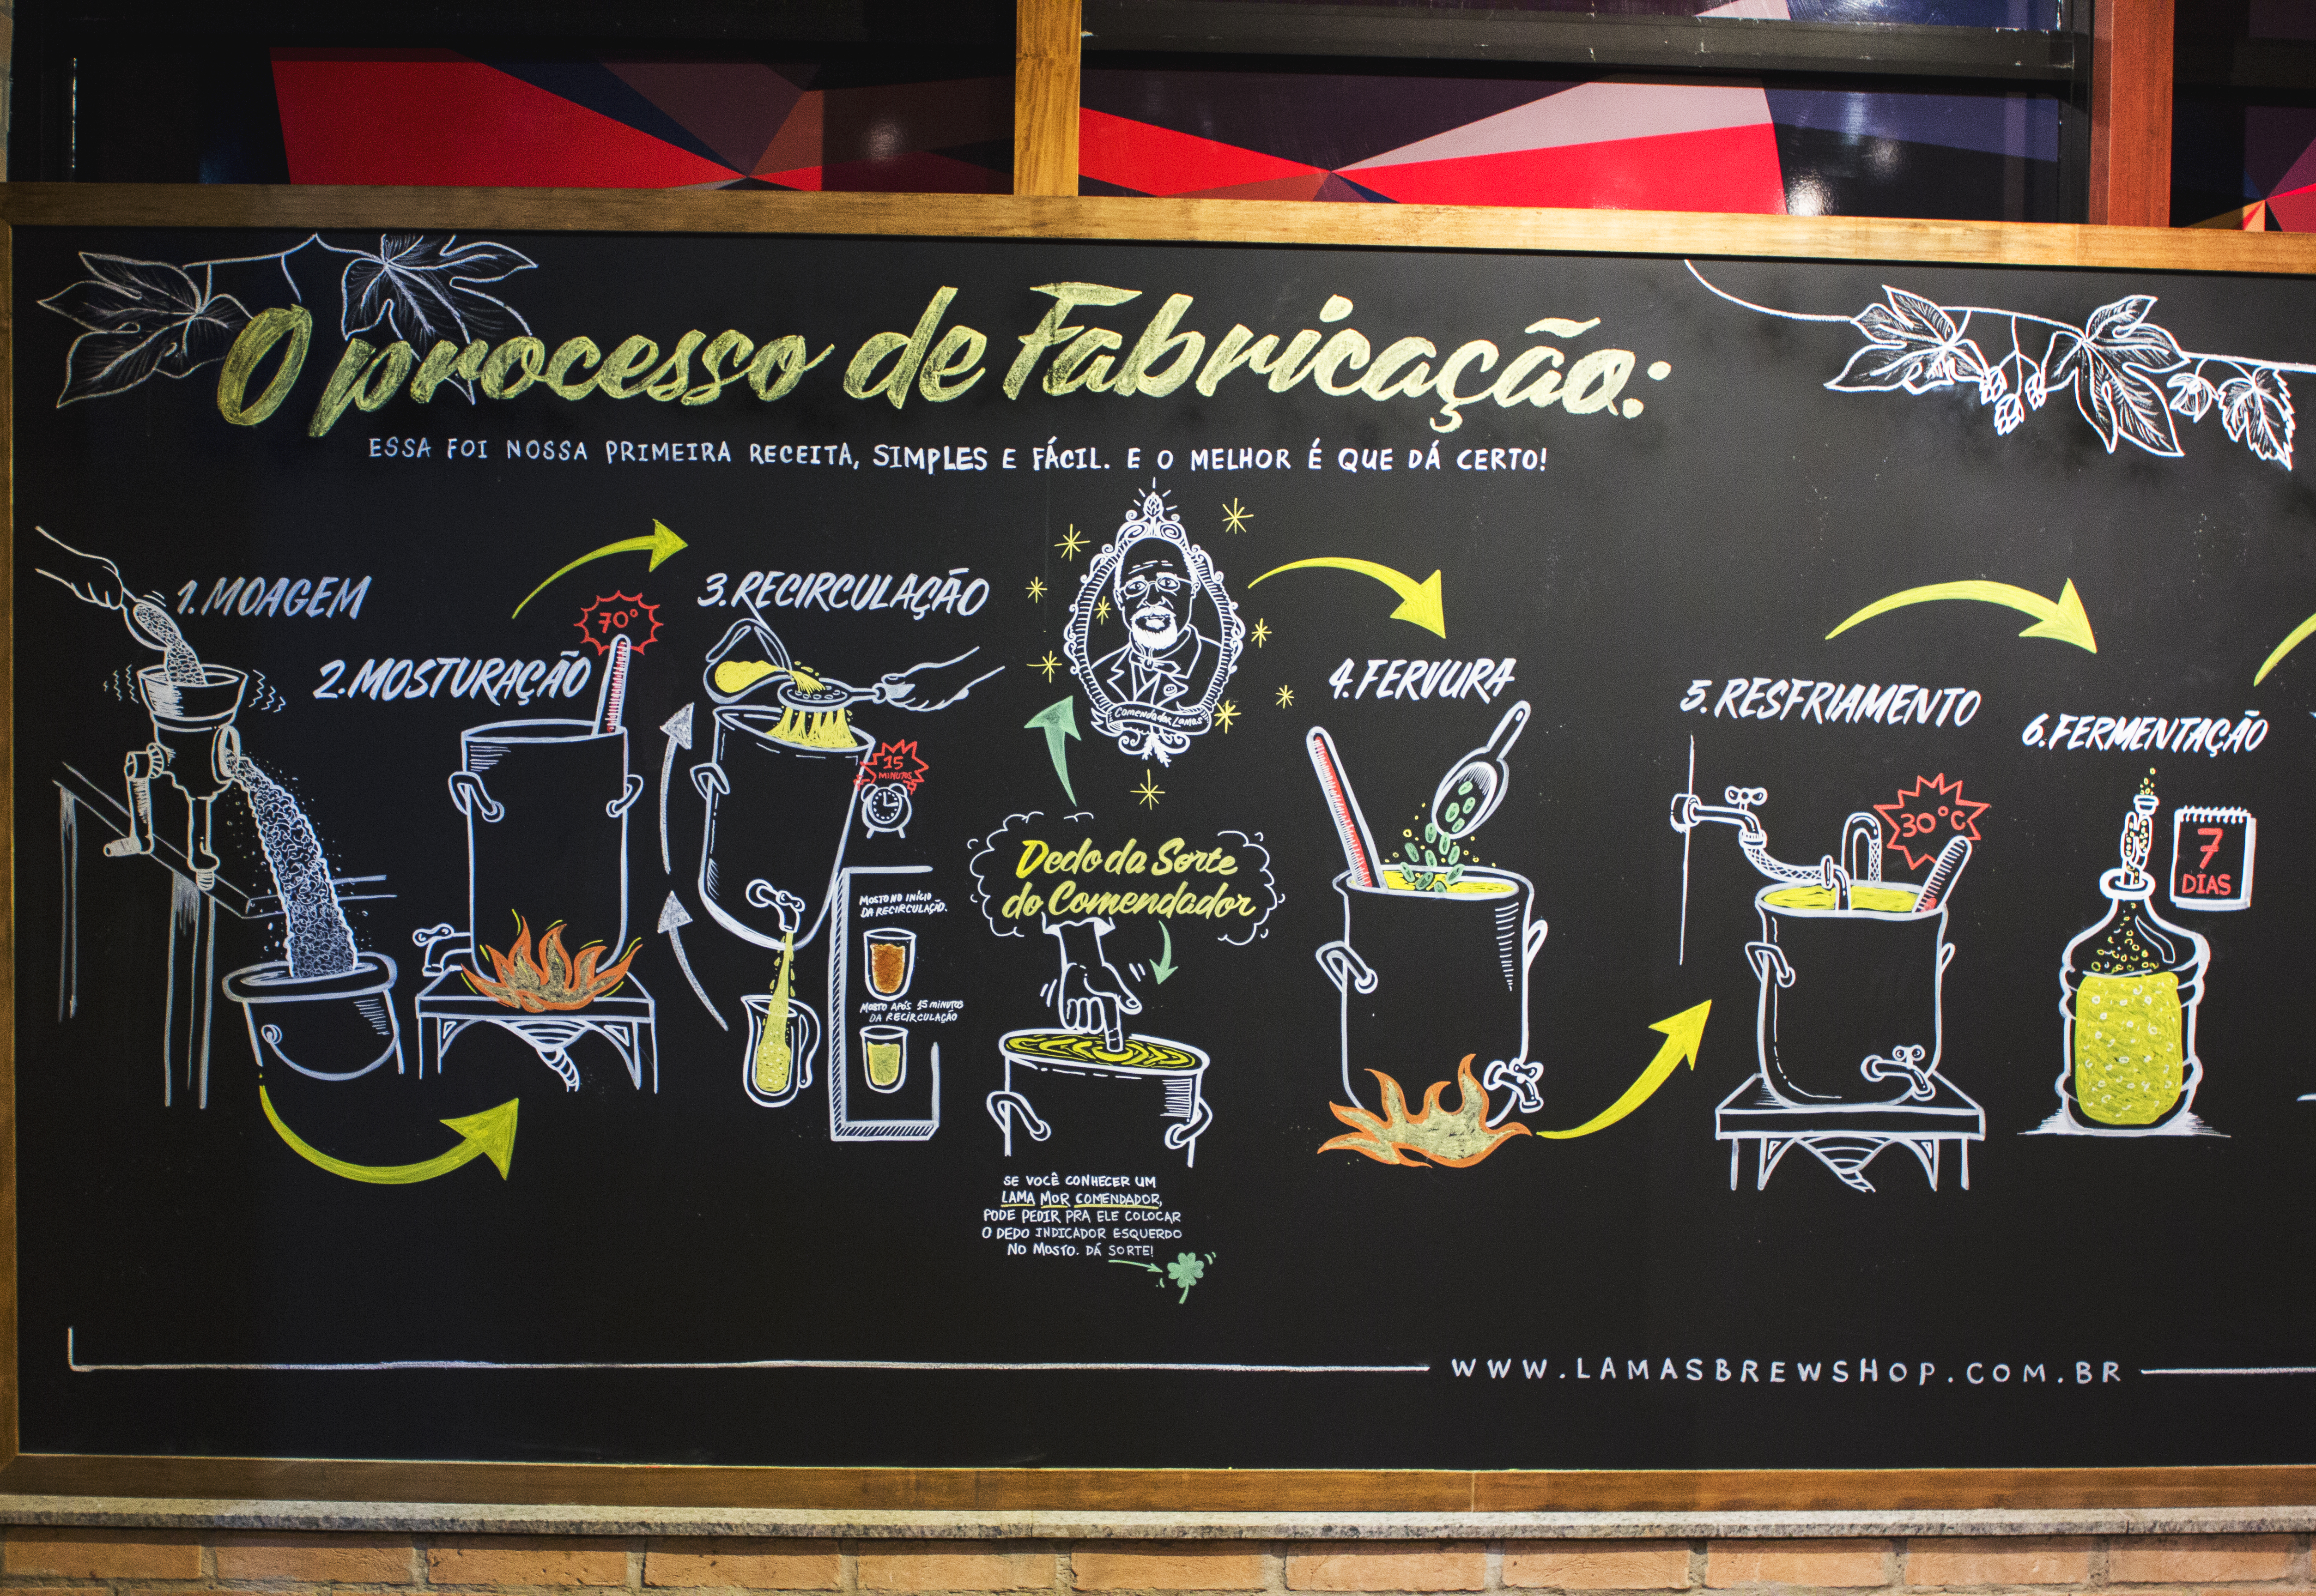 O processo de Fabricação:
ESSA FOI NOSSA PRIMEIRA RECEITA, SIMPLES E FÁCIL. E O MELHOR É QUE DÁ CERTO!
1. MOAGEM
2. MOSTURAÇÃO
70°
3. RECIRCULAÇÃO
15
MINUTOS
MOSTO NO INÍCIO
DA RECIRCULAÇÃO.
MOSTO APÓS 15 MINUTOS
DA RECIRCULAÇÃO
Comendador Lamas
Dedo da Sorte
do Comendador
SE VOCÊ CONHECER UM
LAMA MOR COMENDADOR,
PODE PEDIR PRA ELE COLOCAR
O DEDO INDICADOR ESQUERDO
NO MOSTO. DÁ SORTE!
4. FERVURA
5. RESFRIAMENTO
30°C
6. FERMENTAÇÃO
7
DIAS
WWW.LAMASBREWSHOP.COM.BR